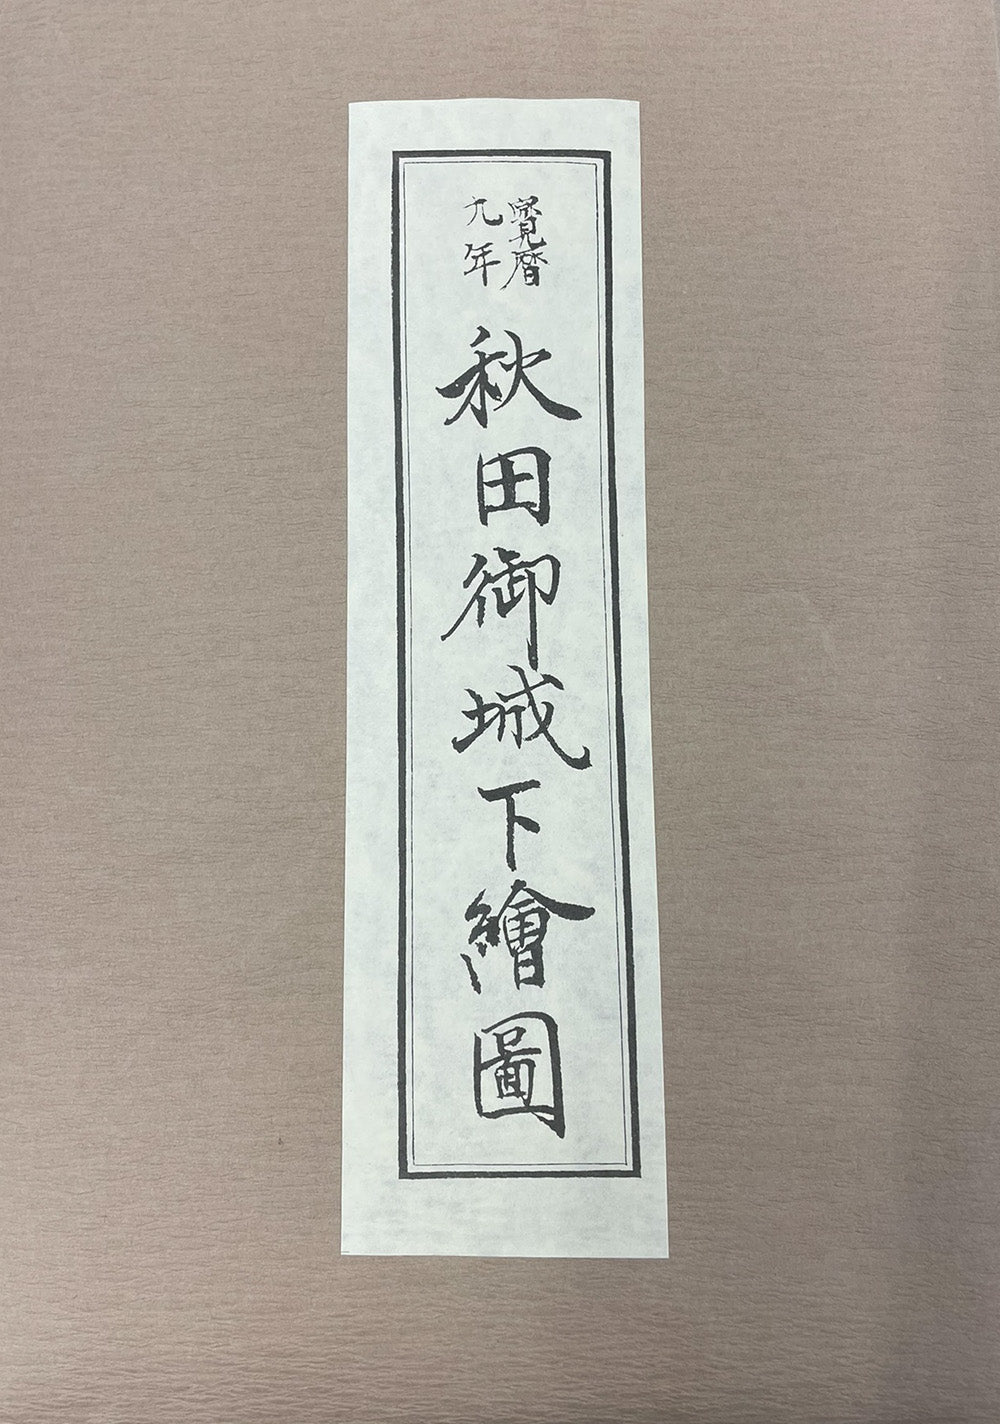 寳暦
九年
秋田御城下繪圖